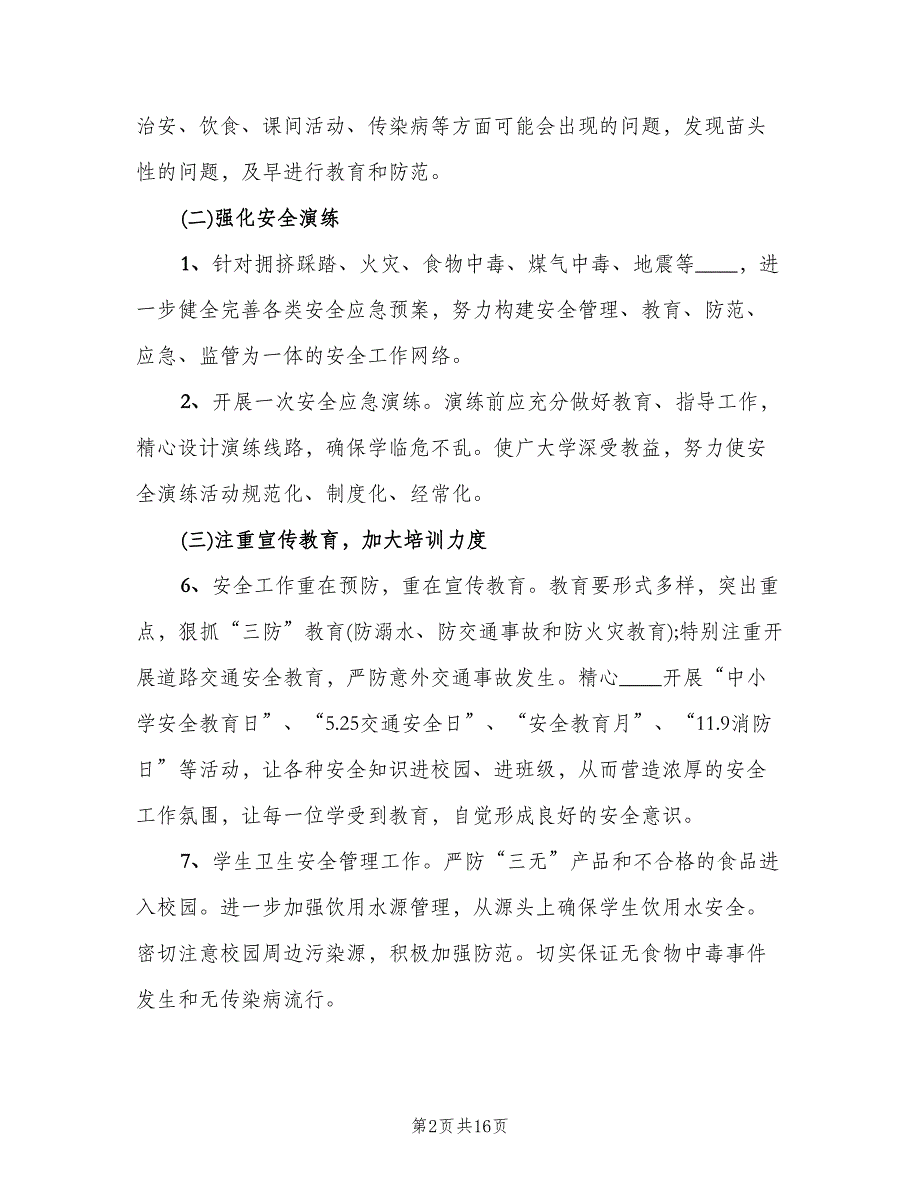 治安、饮食、课间活动、传染病等方面可能会出现的问题，发现苗头
性的问题，及早进行教育和防范。
(二)强化安全演练
1、针对拥挤踩踏、火灾、食物中毒、煤气中毒、地震等____，进
一步健全完善各类安全应急预案，努力构建安全管理、教育、防范、
应急、监管为一体的安全工作网络。
2、开展一次安全应急演练。演练前应充分做好教育、指导工作，
精心设计演练线路，确保学临危不乱。使广大学深受教益，努力使安
全演练活动规范化、制度化、经常化。
(三)注重宣传教育，加大培训力度
6、安全工作重在预防，重在宣传教育。教育要形式多样，突出重
点，狠抓“三防”教育(防溺水、防交通事故和防火灾教育);特别注重开
展道路交通安全教育，严防意外交通事故发生。精心____开展“中小
学安全教育日”、“5.25交通安全日”、“安全教育月”、“11.9消防
日”等活动，让各种安全知识进校园、进班级，从而营造浓厚的安全
工作氛围，让每一位学受到教育，自觉形成良好的安全意识。
7、学生卫生安全管理工作。严防“三无”产品和不合格的食品进
入校园。进一步加强饮用水源管理，从源头上确保学生饮用水安全。
密切注意校园周边污染源，积极加强防范。切实保证无食物中毒事件
发生和无传染病流行。
第2页共16页